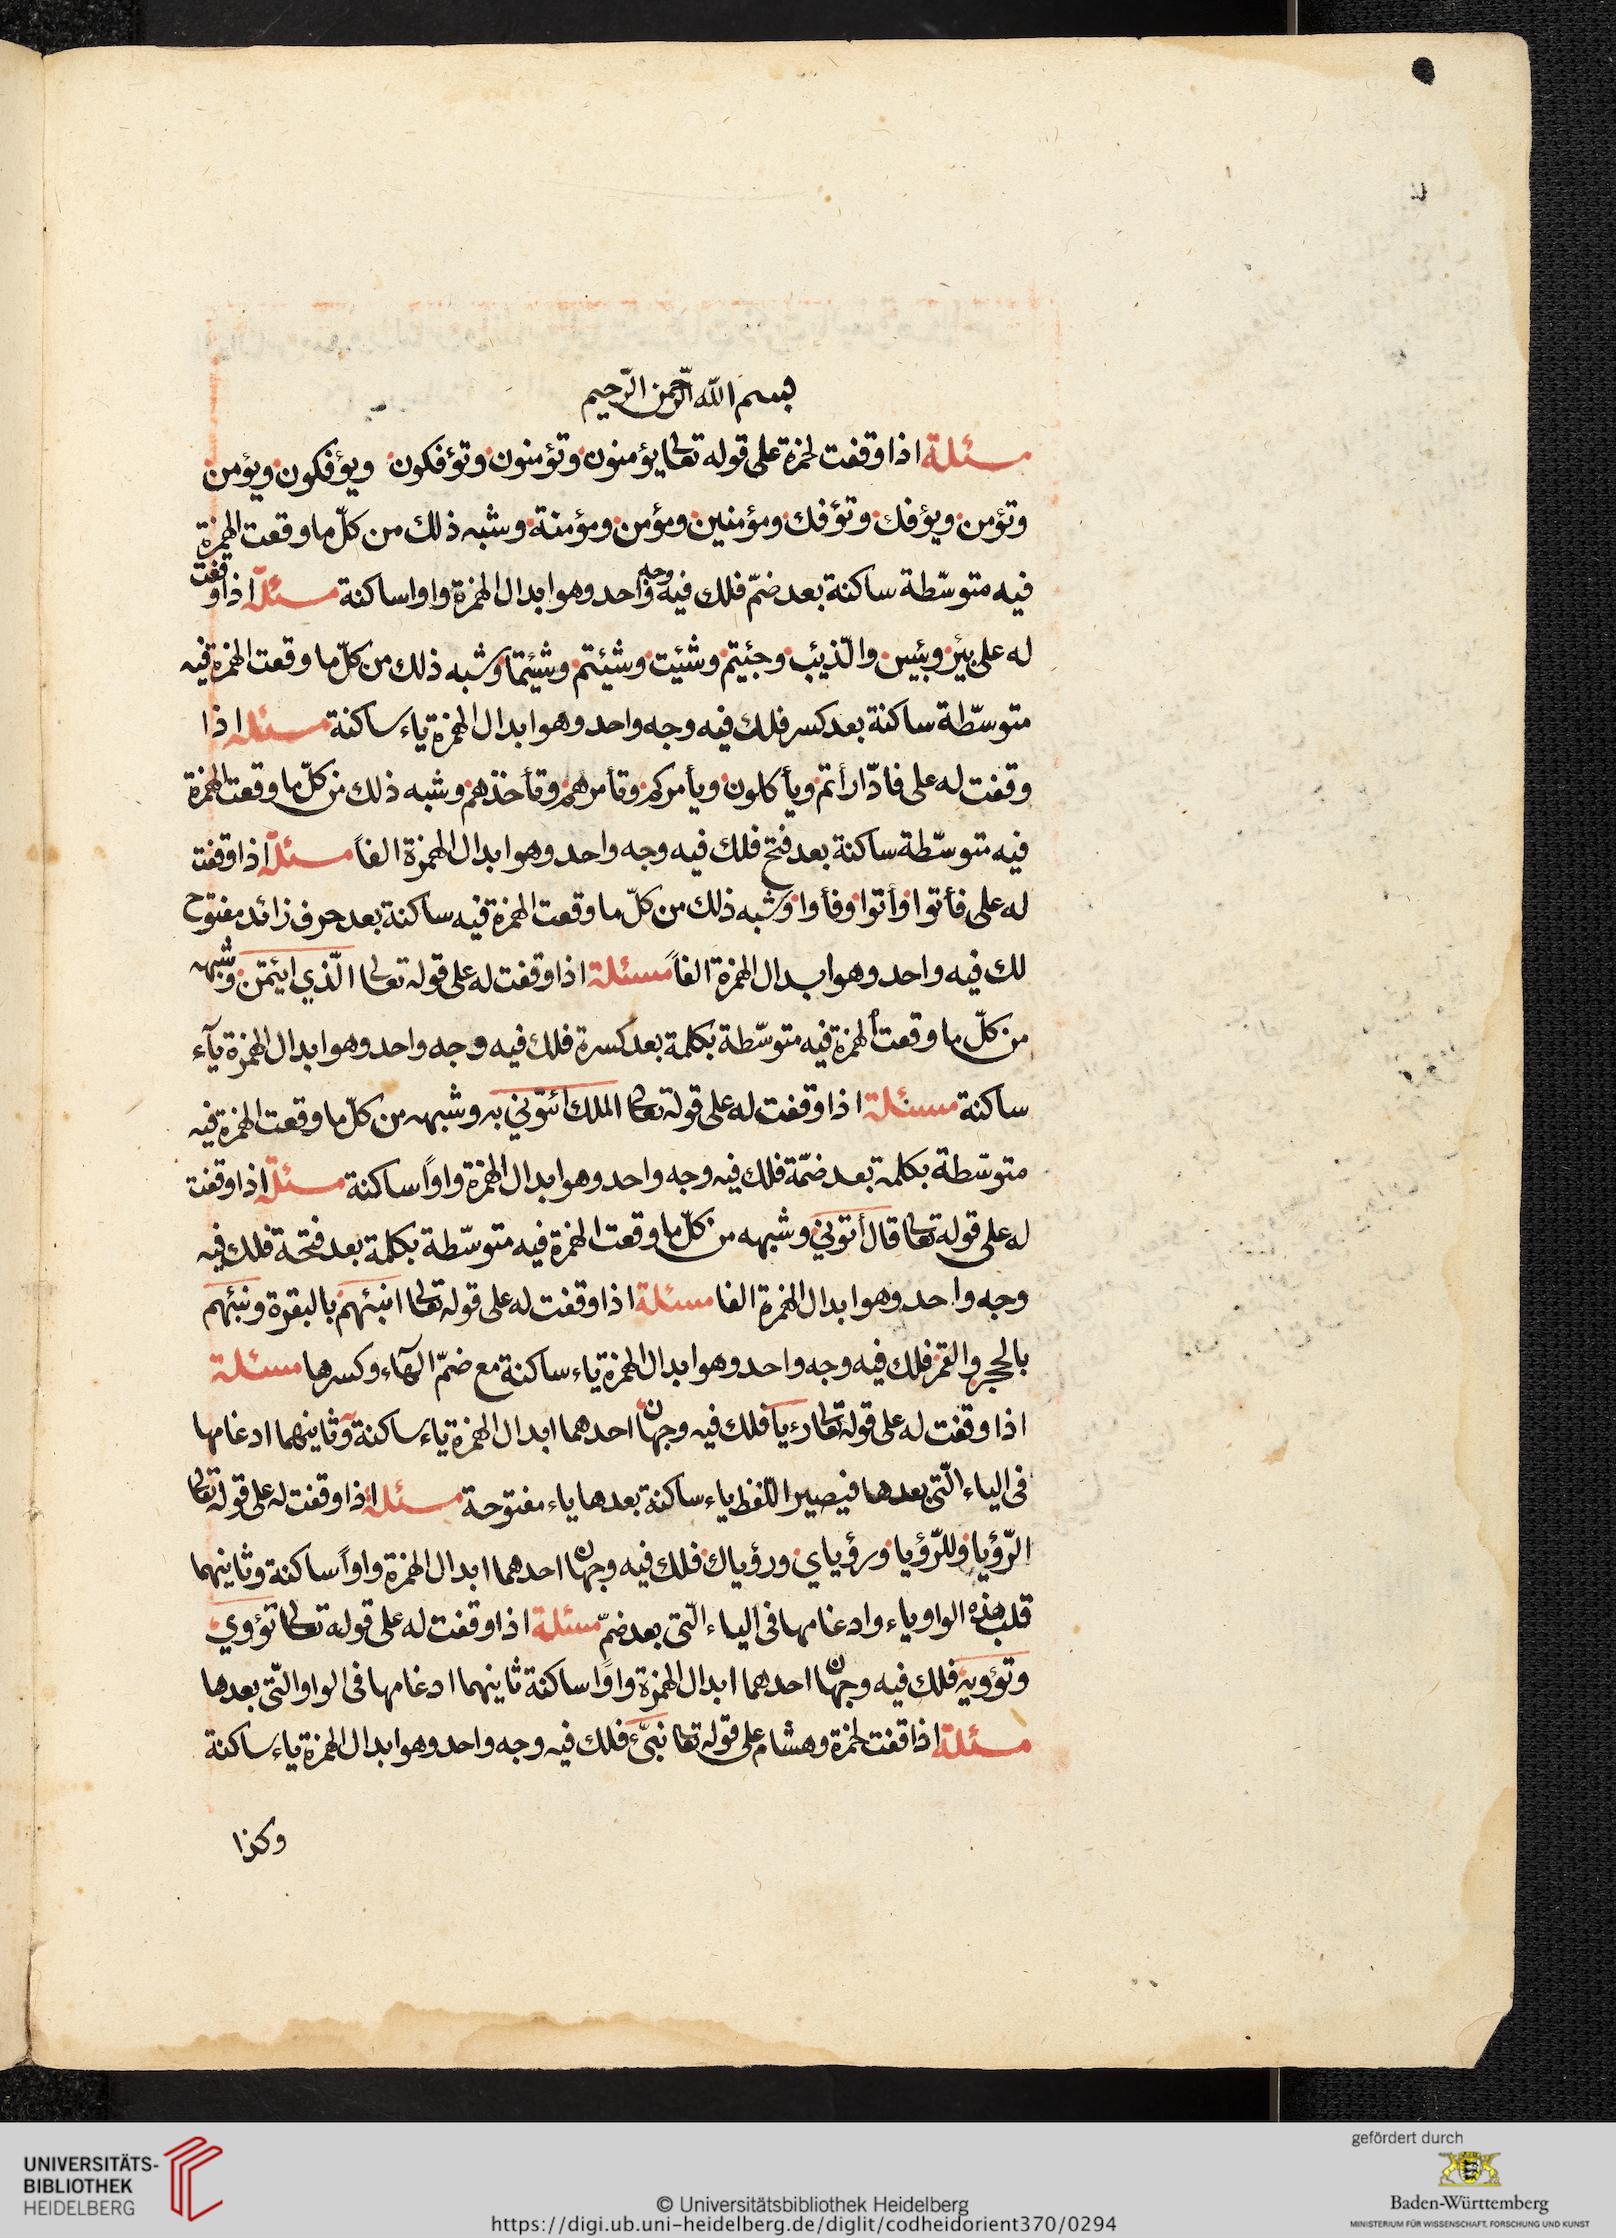 بسم الله الرّحمن الرّحيم
مسئلة اذا وقفت لحمزة على قوله تعالى يؤمنون وتؤمنون وتؤفكون ويؤفكون ويؤمن
وتؤمن ويؤفك وتؤفك ومؤمنين ومؤمن ومؤمنة وشبه ذلك من كلّ ما وقعت الهمزة
فيه متوسّطة ساكنة بعد ضمّ فلك فيه وجه واحد وهو ابدال الهمزة واوا ساكنة مسئلة اذا وقفت
له على بئر وبئس والذّئب وجئتم وشئت وشئتم وشئتما وشبه ذلك من كلّ ما وقعت الهمزة فيه
متوسّطة ساكنة بعد كسر فلك فيه وجه واحد وهو ابدال الهمزة ياء ساكنة مسئلة اذا
وقفت له على فادّارأتم ويأكلون ويأمركم وتأمرهم وتأخذهم وشبه ذلك من كلّ ما وقعت الهمزة
فيه متوسّطة ساكنة بعد فتح فلك فيه وجه واحد وهو ابدال الهمزة الفاً مسئلة اذا وقفت
له على فأتوا وأتوا وفأوا وشبه ذلك من كلّ ما وقعت الهمزة فيه ساكنة بعد حرف زائد مفتوح
لك فيه واحد وهو ابدال الهمزة الفاً مسئلة اذا وقفت له على قوله تعالى الّذي ايئتمن وشبهه
من كلّ ما وقعت الهمزة فيه متوسّطة بكلمة بعد كسرة فلك فيه وجه واحد وهو ابدال الهمزة يآء
ساكنة مسئلة اذا وقفت له على قوله تعالى الملك ائتوني به وشبهه من كلّ ما وقعت الهمزة فيه
متوسّطة بكلمة بعد ضمّة فلك فيه وجه واحد وهو ابدال الهمزة واوًا ساكنة مسئلة اذا وقفت
له على قوله تعالى قال أتوني وشبهه من كلّ ما وقعت الهمزة فيه متوسّطة بكلمة بعد فتحة فلك فيه
وجه واحد وهو ابدال الهمزة الفا مسئلة اذا وقفت له على قوله تعالى انبئهم بالبقرة ونبئهم
بالحجر والقمر فلك فيه وجه واحد وهو ابدال الهمزة ياء ساكنة مع ضمّ الهآء وكسرها مسئلة
اذا وقفت له على قوله تعالى رءيا فلك فيه وجهان احدهما ابدال الهمزة ياء ساكنة وثانيهما ادغامها
فى الياء الّتى بعدها فيصير اللّفظ ياء ساكنة بعدها ياء مفتوحة مسئلة اذا وقفت له على قوله تعالى
الرّؤيا وللرّؤيا ورؤياي ورؤياك فلك فيه وجهان احدهما ابدال الهمزة واواً ساكنة وثانيهما
قلب هذه الواو ياء وادغامها فى الياء الّتى بعد ضمّ مسئلة اذا وقفت له على قوله تعالى تؤوي
وتؤويه فلك فيه وجهان احدهما ابدال الهمزة واوًا ساكنة ثانيهما ادغامها فى الواو الّتى بعدها
مسئلة اذا قفت لحمزة وهشام على قوله تعالى نبّئ فلك فيه وجه واحد وهو ابدال الهمزة ياء ساكنة
وكذا
UNIVERSITÄTS-
BIBLIOTHEK
HEIDELBERG
© Universitätsbibliothek Heidelberg
https://digi.ub.uni-heidelberg.de/diglit/codheidorient370/0294
gefördert durch
Baden-Württemberg
MINISTERIUM FÜR WISSENSCHAFT, FORSCHUNG UND KUNST